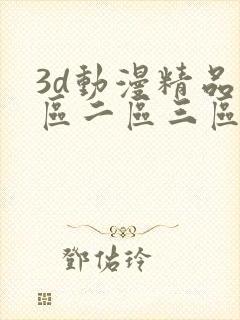 3d動漫精品
區二區三區
鄧佑玲